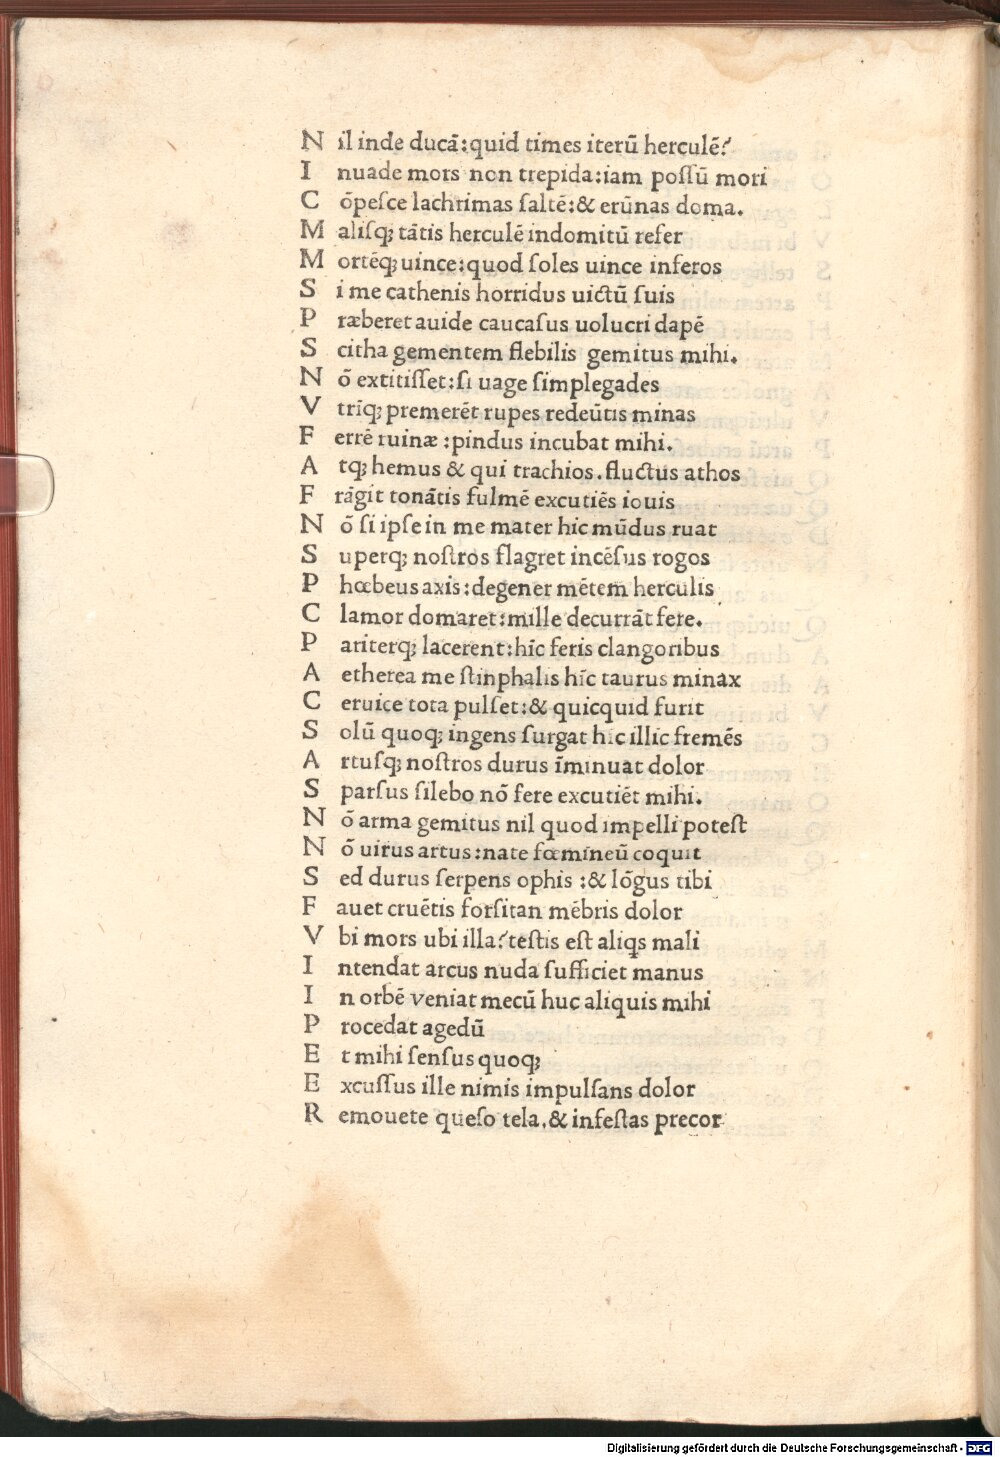 N il inde ducā:quid times iterū herculē?
I nuade mors non trepida:iam possū mori
C ōpesce lachrimas saltē:& erūnas doma.
M alisq; tātis herculē indomitū refer
M ortēq; uince:quod soles uince inferos
S i me cathenis horridus uictū suis
P ræberet auide caucasus uolucri dapē
S citha gementem flebilis gemitus mihi.
N ō extitisset:si uage simplegades
V trīq; premerēt rupes redeūtis minas
F errē ruinæ :pindus incubat mihi.
A tq; hemus & qui trachios.fluctus athos
F rāgit tonātis fulmē excutiēs iouis
N ō si ipse in me mater hic mūdus ruat
S uperq; nostros flagret incēsus rogos
P hœbeus axis:degener mētem herculis
C lamor domaret:mille decurrāt fere.
P ariterq; lacerent:hīc feris clangoribus
A etherea me stinphalis hīc taurus minax
C eruice tota pulset:& quicquid furit
S olū quoq; ingens surgat hic illic fremēs
A rtusq; nostros durus īminuat dolor
S parsus silebo nō fere excutiēt mihi.
N ō arma gemitus nil quod impelli potest
N ō uirus artus:nate fœmineū coquit
S ed durus serpens ophis :& lōgus tibi
F auet cruētis forsitan mēbris dolor
V bi mors ubi illa?testis est aliqs mali
I ntendat arcus nuda sufficiet manus
I n orbē veniat mecū huc aliquis mihi
P rocedat agedū
E t mihi sensus quoq;
E xcussus ille nimis impulsans dolor
R emouete queso tela.& infestas precor
Digitalisierung gefördert durch die Deutsche Forschungsgemeinschaft - DFG